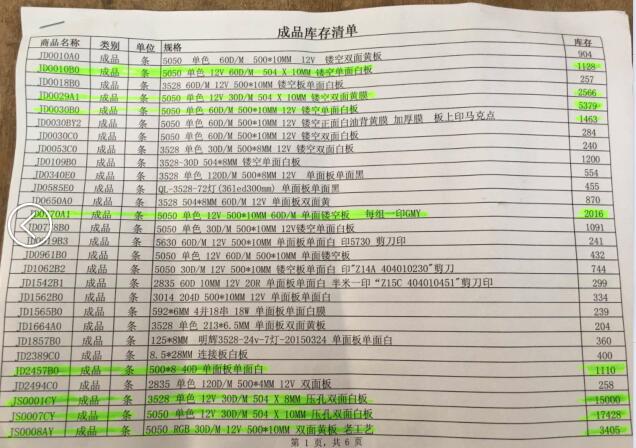 成品库存清单
商品名称 类别 单位 规格 库存
JD0010A0 成品 条 5050 单色 60D/M 500*10MM 12V 镂空双面黄板 904
JD0010B0 成品 条 5050 单色 12V 60D/M 504 X 10MM 镂空单面白板 1128
JD0018B0 成品 条 3528 60D/M 12V 500*10MM 镂空板单面白板 257
JD0029A1 成品 条 5050 单色 12V 30D/M 504 X 10MM 镂空双面黄膜 2566
JD0030B0 成品 条 5050 单色 60D/M 12V 500*10MM 镂空单面白板 5379
JD0030BY2 成品 条 5050 单色 60D/M 12V 500*10MM 镂空正面白油背黄膜 加厚膜 板上印马克点 1463
JD0030C0 成品 条 5050 单色 60D/M 12V 500*10MM 镂空双面白板 284
JD0053C0 成品 条 3528 单色 30D/M 500*8MM 12V 镂空双面白板 240
JD0109B0 成品 条 3528-30D 504*8MM 镂空单面白板 1200
JD0340E0 成品 条 3528 单色 120D/M 500*8MM 12V 单面板单面黑 554
JD0585E0 成品 条 QL-3528-72灯(36led300mm) 单面板单面黑 455
JD0650A0 成品 条 3528 504*8MM 60D/M 12V 单面板双面黄 870
JD0670A1 成品 条 5050 单色 12V 500*10MM 60D/M 单面镂空板 每组一印GMY 2016
成品 条 5050 单色 30D/M 12V 500*10MM 镂空单面白板 1091
成品 条 5630 60D/M 12V 500*10MM 单面板单面白 印5730 剪刀印 241
JD0961B0 成品 条 5050 单色 60D/M 12V 500*10MM 单面镂空板 432
JD1062B2 成品 条 5050 30D/M 12V 500*10MM 镂空板单面白 印"Z14A 404010230"剪刀 744
JD1542B1 成品 条 2835 60D 10MM 12V 20R 单面板单面白 半米一印“Z15C 404010451”剪刀印 299
JD1562B0 成品 条 3014 204D 500*10MM 12V 单面板单面白 334
JD1565B0 成品 条 592*6MM 4并18串 18W 单面板单面白膜 239
JD1664A0 成品 条 3528 单色 213*6.5MM 单面板双面黄板 204
JD1857B0 成品 条 125*8MM 明辉3528-24v-7灯-20150324 单面板单面白 360
JD2389C0 成品 条 8.5*28MM 连接板白板 400
JD2457B0 成品 条 500*8 40D 单面板单面白 1110
JD2494C0 成品 条 2835 单色 120D/M 500*4MM 12V 双面板 258
JS0001CY 成品 条 3528 单色 12V 30D/M 504 X 8MM 压孔双面白板 15000
JS0007CY 成品 条 5050 单色 12V 30D/M 504 X 10MM 压孔双面白板 17428
JS0008AY 成品 条 5050 RGB 30D/M 12V 500*10MM 双面黄板 老工艺 3405
第 1 页，共 6 页